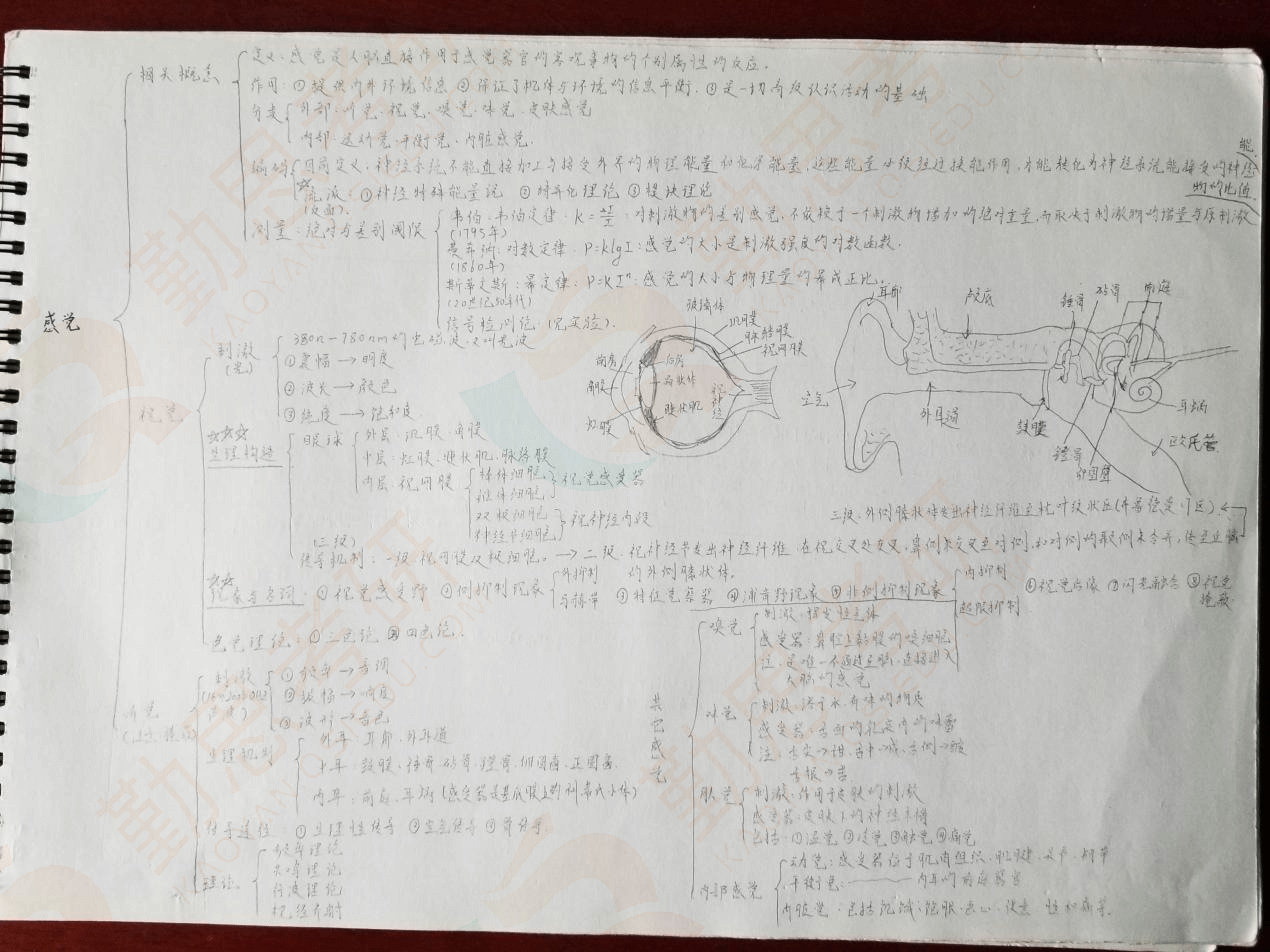 感觉
相关概念
定义：感觉是人脑直接作用于感觉器官的客观事物的个别属性的反应。
作用：①提供内外环境信息 ②保证了机体与环境的信息平衡。③是一切高级认识活动的基础
分支
外部：听觉、视觉、嗅觉、味觉、皮肤感觉
内部：运动觉、平衡觉、内脏感觉.
编码
定义：神经系统不能直接加工与接受外界的物理能量和化学能量，这些能量必须经过换能作用，才能转化为神经系统能接受的神经能.
流派：①神经特殊能量说 ②特异化理论 ③模块理论
测量：绝对与差别阈限
韦伯：韦伯定律：K=ΔI/I：对刺激物的差别感觉，不依赖于一个刺激物增加的绝对重量，而取决于刺激物的增量与原刺激物的比值
(1795年)
费希纳：对数定律：P=klgI：感觉的大小是刺激强度的对数函数.
(1860年)
斯蒂文斯：幂定律：P=KIⁿ：感觉的大小与物理量的幂成正比.
(20世纪50年代)
信号检测论 (见实验).
视觉
刺激
(光)
380n-780nm的电磁波，又叫光波
①振幅→明度
②波长→颜色
③纯度→饱和度
☆☆☆
生理构造
眼球
外层：巩膜、角膜
中层：虹膜、睫状肌、脉络膜
内层：视网膜
棒体细胞
锥体细胞
视觉感受器
双极细胞
神经节细胞
视神经内段
(三级)
传导机制：一级：视网膜双极细胞。→二级：视神经节发出神经纤维，在视交叉处交叉，鼻侧束交叉至对侧，和对侧的颞侧束合并，传至丘脑的外侧膝状体。
三级：外侧膝状体发出神经纤维至枕叶纹状区(布鲁德曼17区)
☆☆
现象与名词：①视觉感受野 ②侧抑制现象
外抑制
马赫带
③特征觉察器 ④浦肯野现象 ⑤非侧抑制现象
内抑制
超限抑制
⑥视觉后像 ⑦闪光融合 ⑧视觉掩蔽
色觉理论：①三色论 ②四色论.
玻璃体
巩膜
脉络膜
视网膜
前房
后房
角膜
晶状体
睫状肌
虹膜
视神经
耳廓
颅底
锤骨
砧骨
前庭
空气
外耳道
鼓膜
镫骨
卵圆窗
耳蜗
欧氏管
听觉
刺激
(16-20000Hz声波)
①频率→音调
②振幅→响度
③波形→音色
生理机制
外耳：耳廓、外耳道
中耳：鼓膜、锤骨、砧骨、镫骨、卵圆窗、正圆窗
内耳：前庭、耳蜗(感受器是基底膜上的柯蒂氏小体)
传导途径：①生理性传导 ②空气传导 ③骨传导.
理论
频率理论
共鸣理论
行波理论
神经齐射
其它感觉
嗅觉
刺激：挥发性气体
感受器：鼻腔上黏膜的嗅细胞
注：是唯一不通过丘脑，直接进入
大脑的感觉
味觉
刺激：溶于水有味的物质
感受器：舌面的乳突内的味蕾
注：舌尖→甜，舌中→咸，舌侧→酸
舌根→苦
肤觉
刺激：作用于皮肤的刺激
感受器：皮肤下的神经末梢
包括：①温觉 ②冷觉 ③触觉 ④痛觉
内部感觉
动觉：感受器位于肌肉组织、肌腱、关节、韧带
平衡觉：——— 内耳的前庭器官
内脏觉：包括饥饿、饱胀、恶心、便意、性和痛等.